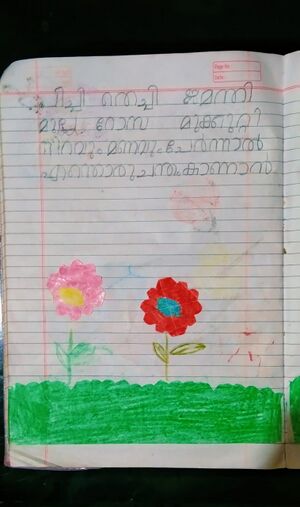 Page No.
Date:
പിച്ചി തെച്ചി ജമന്തി
മുല്ല റോസ മുക്കുറ്റി
നിറവും മണവും ചേർന്നാൽ
എന്തൊരു ചന്തം കാണാൻ